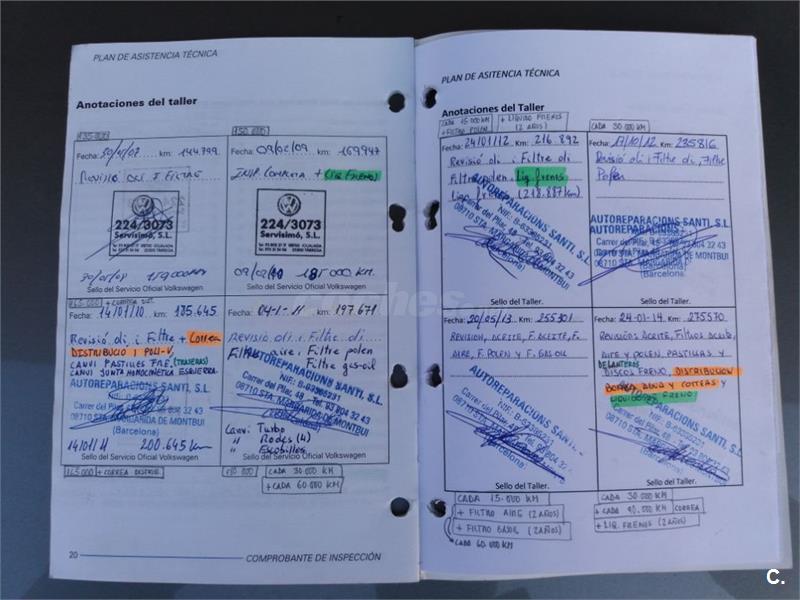 PLAN DE ASISTENCIA TÉCNICA
Anotaciones del taller
135.000
Fecha: 30/01/07 km: 144.799
REVISIÓ OLI I FILTRE
224/3073
Servisimó, S.L.
30/01/08 159000 KM
Sello del Servicio Oficial Volkswagen
150.000
Fecha: 09/02/09 km: 169947
INSP. COMPLETA + (LIQ FRENO)
224/3073
Servisimó, S.L.
09/02/10 185 000 KM.
Sello del Servicio Oficial Volkswagen
165.000 + CORREA DIST.
Fecha: 14/01/10 km: 185.645
Revisió oli i Filtre + Correa
DISTRIBUCIO I POLI-V,
CANVI PASTILLES FRE, (TRASERAS)
CANVI JUNTA HOMOCINETICA ESQUERRA
AUTOREPARACIONS SANTI, S.L.
NIF: B-63365231
Carrer del Pilar, 48 - Tel. 93 804 32 43
08710 STA. MARGARIDA DE MONTBUI
(Barcelona)
14/01/11 200.645 km
Sello del Servicio Oficial Volkswagen
165000 + CORREA DISTRIB.
Fecha: 04-1-11 km: 197.671
Revisió oli i Filtre oli
Filtre aire, Filtre polen
Filtre gas-oil
AUTOREPARACIONS SANTI, S.L.
NIF: B-63365231
Carrer del Pilar, 48 - Tel. 93 804 32 43
08710 STA. MARGARIDA DE MONTBUI
Canvi Turbo
" Rodes (4)
" Escobilles
Sello del Servicio Oficial Volkswagen
CADA 30.000 KM
+ CADA 60.000 KM
20
COMPROBANTE DE INSPECCIÓN
PLAN DE ASITENCIA TÉCNICA
Anotaciones del Taller
CADA 15.000 KM + LIQUIDO FRENOS
+ FILTRO POLEN (2 AÑOS)
Fecha: 24/01/12 km: 216.892
Revisió oli i Filtre oli
Filtre polen, Liq. frenis
Liq. frens (218.887 Km)
AUTOREPARACIONS SANTI, S.L.
NIF: B-63365231
Carrer del Pilar, 48 - Tel. 93 804 32 43
08710 STA. MARGARIDA DE MONTBUI
(Barcelona)
Sello del Taller.
CADA 30.000 KM
Fecha: 17/10/12 km: 235816
Revisió oli, i Filtre oli, Filtre
Polen
AUTOREPARACIONS SANTI, S.L.
NIF: B-63365231
Carrer del Pilar, 48 - Tel. 93 804 32 43
08710 STA. MARGARIDA DE MONTBUI
(Barcelona)
Sello del Taller.
Fecha: 20/05/13 km: 255301
REVISION, ACEITE, F. ACEITE, F.
AIRE, F. POLEN Y F. GAS OIL
AUTOREPARACIONS SANTI, S.L.
NIF: B-63365231
Carrer del Pilar, 48 - Tel. 93 804 32 43
08710 STA. MARGARIDA DE MONTBUI
(Barcelona)
Sello del Taller.
Fecha: 24-01-14 km: 275570
REVISIÓN ACEITE, FILTROS ACEITE,
AIRE Y POLEN, PASTILLAS Y
DELANTEROS
DISCOS FRENO, DISTRIBUCION
BOMBA AGUA Y CORREAS Y
LIQUIDO DE FRENO
AUTOREPARACIONS SANTI, S.L.
NIF: B-63365231
Carrer del Pilar, 48 - Tel. 93 804 32 43
08710 STA. MARGARIDA DE MONTBUI
(Barcelona)
Sello del Taller.
CADA 15.000 KM
+ FILTRO AIRE (2 AÑOS)
+ FILTRO GASOIL (2 AÑOS)
CADA 60.000 KM
CADA 30.000 KM
+ CADA 90.000 KM CORREA
+ LIQ. FRENOS (2 AÑOS)
C.